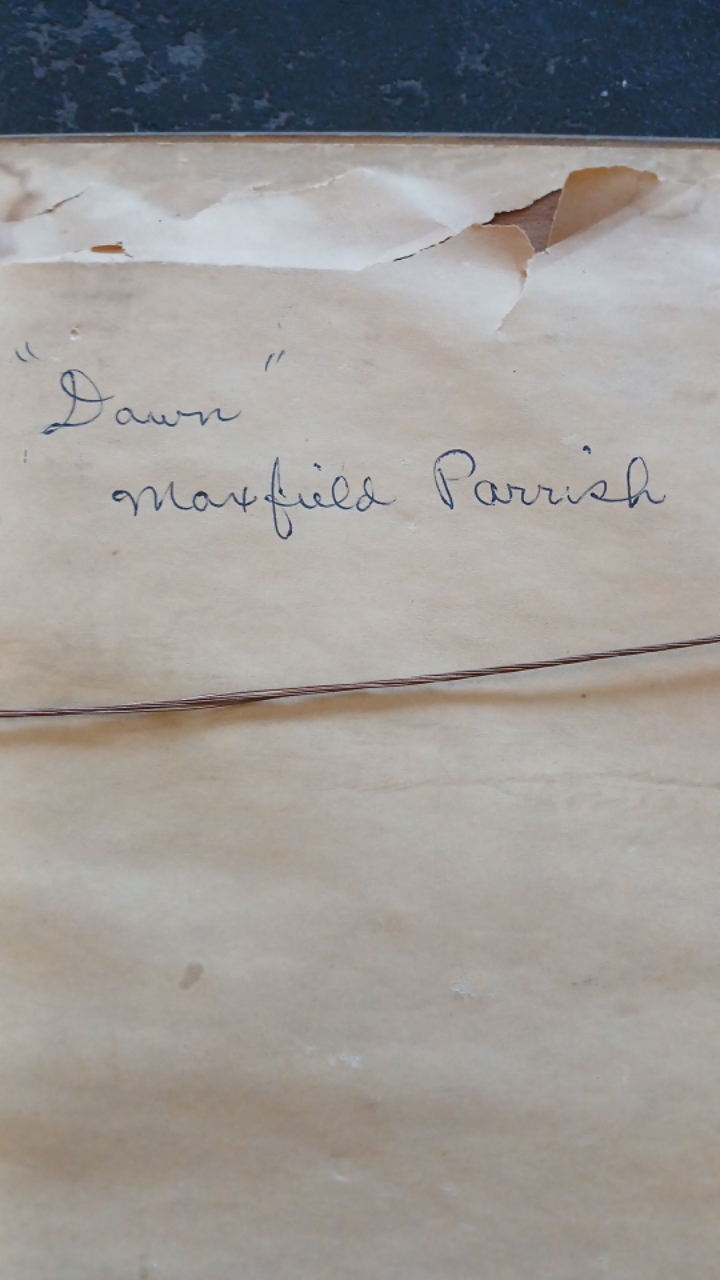 "Dawn"
Maxfield Parrish